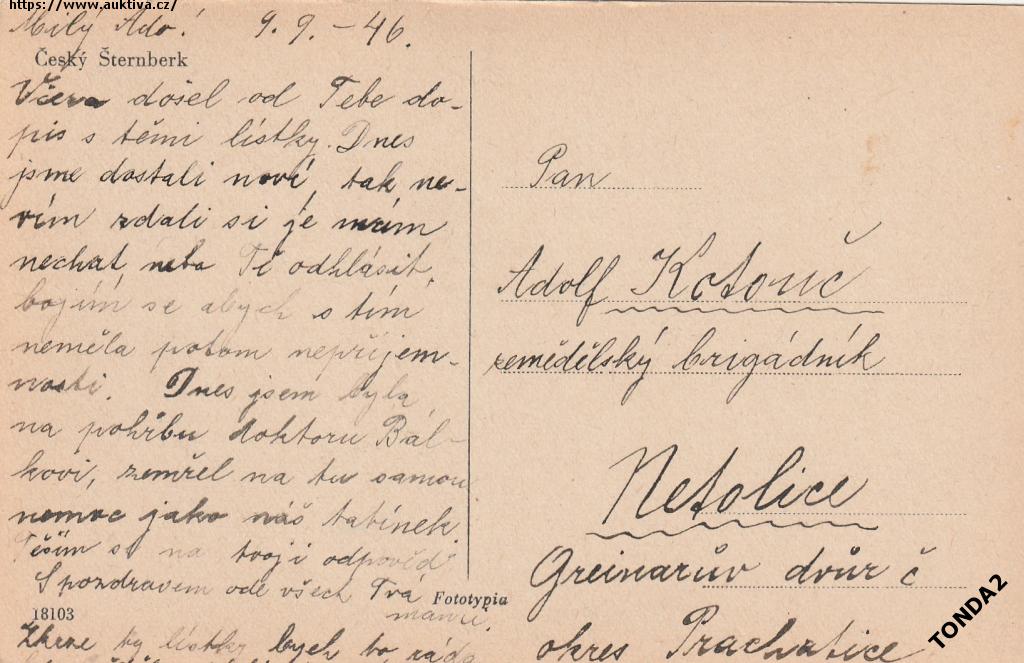 https://www.auktiva.cz/
Milý Ado! 9. 9. - 46.
Český Šternberk
Včera došel od Tebe do-
pis s těmi lístky. Dnes
jsme dostali nové, tak ne-
vím zdali si je mám
nechat nebo Tě odhlásit,
bojím se abych s tím
neměla potom nepříjem-
nosti. Dnes jsem byla
na pohřbu doktoru Bál-
kovi, zemřel na tu samou
nemoc jako náš tatínek.
Těším se na tvoji odpověď
S pozdravem ode všech Tvá
Fototypia
18103
ty lístky bych to ráda
Pan
Adolf Kotouč
zemědělský brigádník
Netolice
Greinarův dvůr č
okres Prachatice
TONDA2